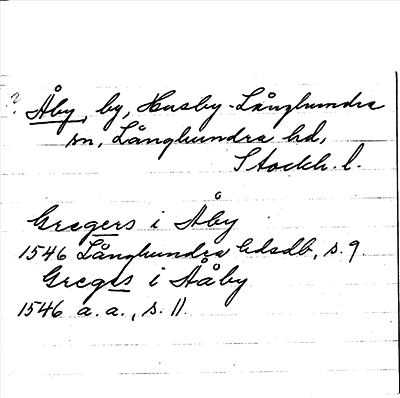 ? Åby, by, Husby-Långhundra
sn, Långhundra hd,
Stockh. l.
Gregers i Åby
1546 Långhundra hdsdb, s. 9.
Greges i Aåby
1546 a. a., s. 11.